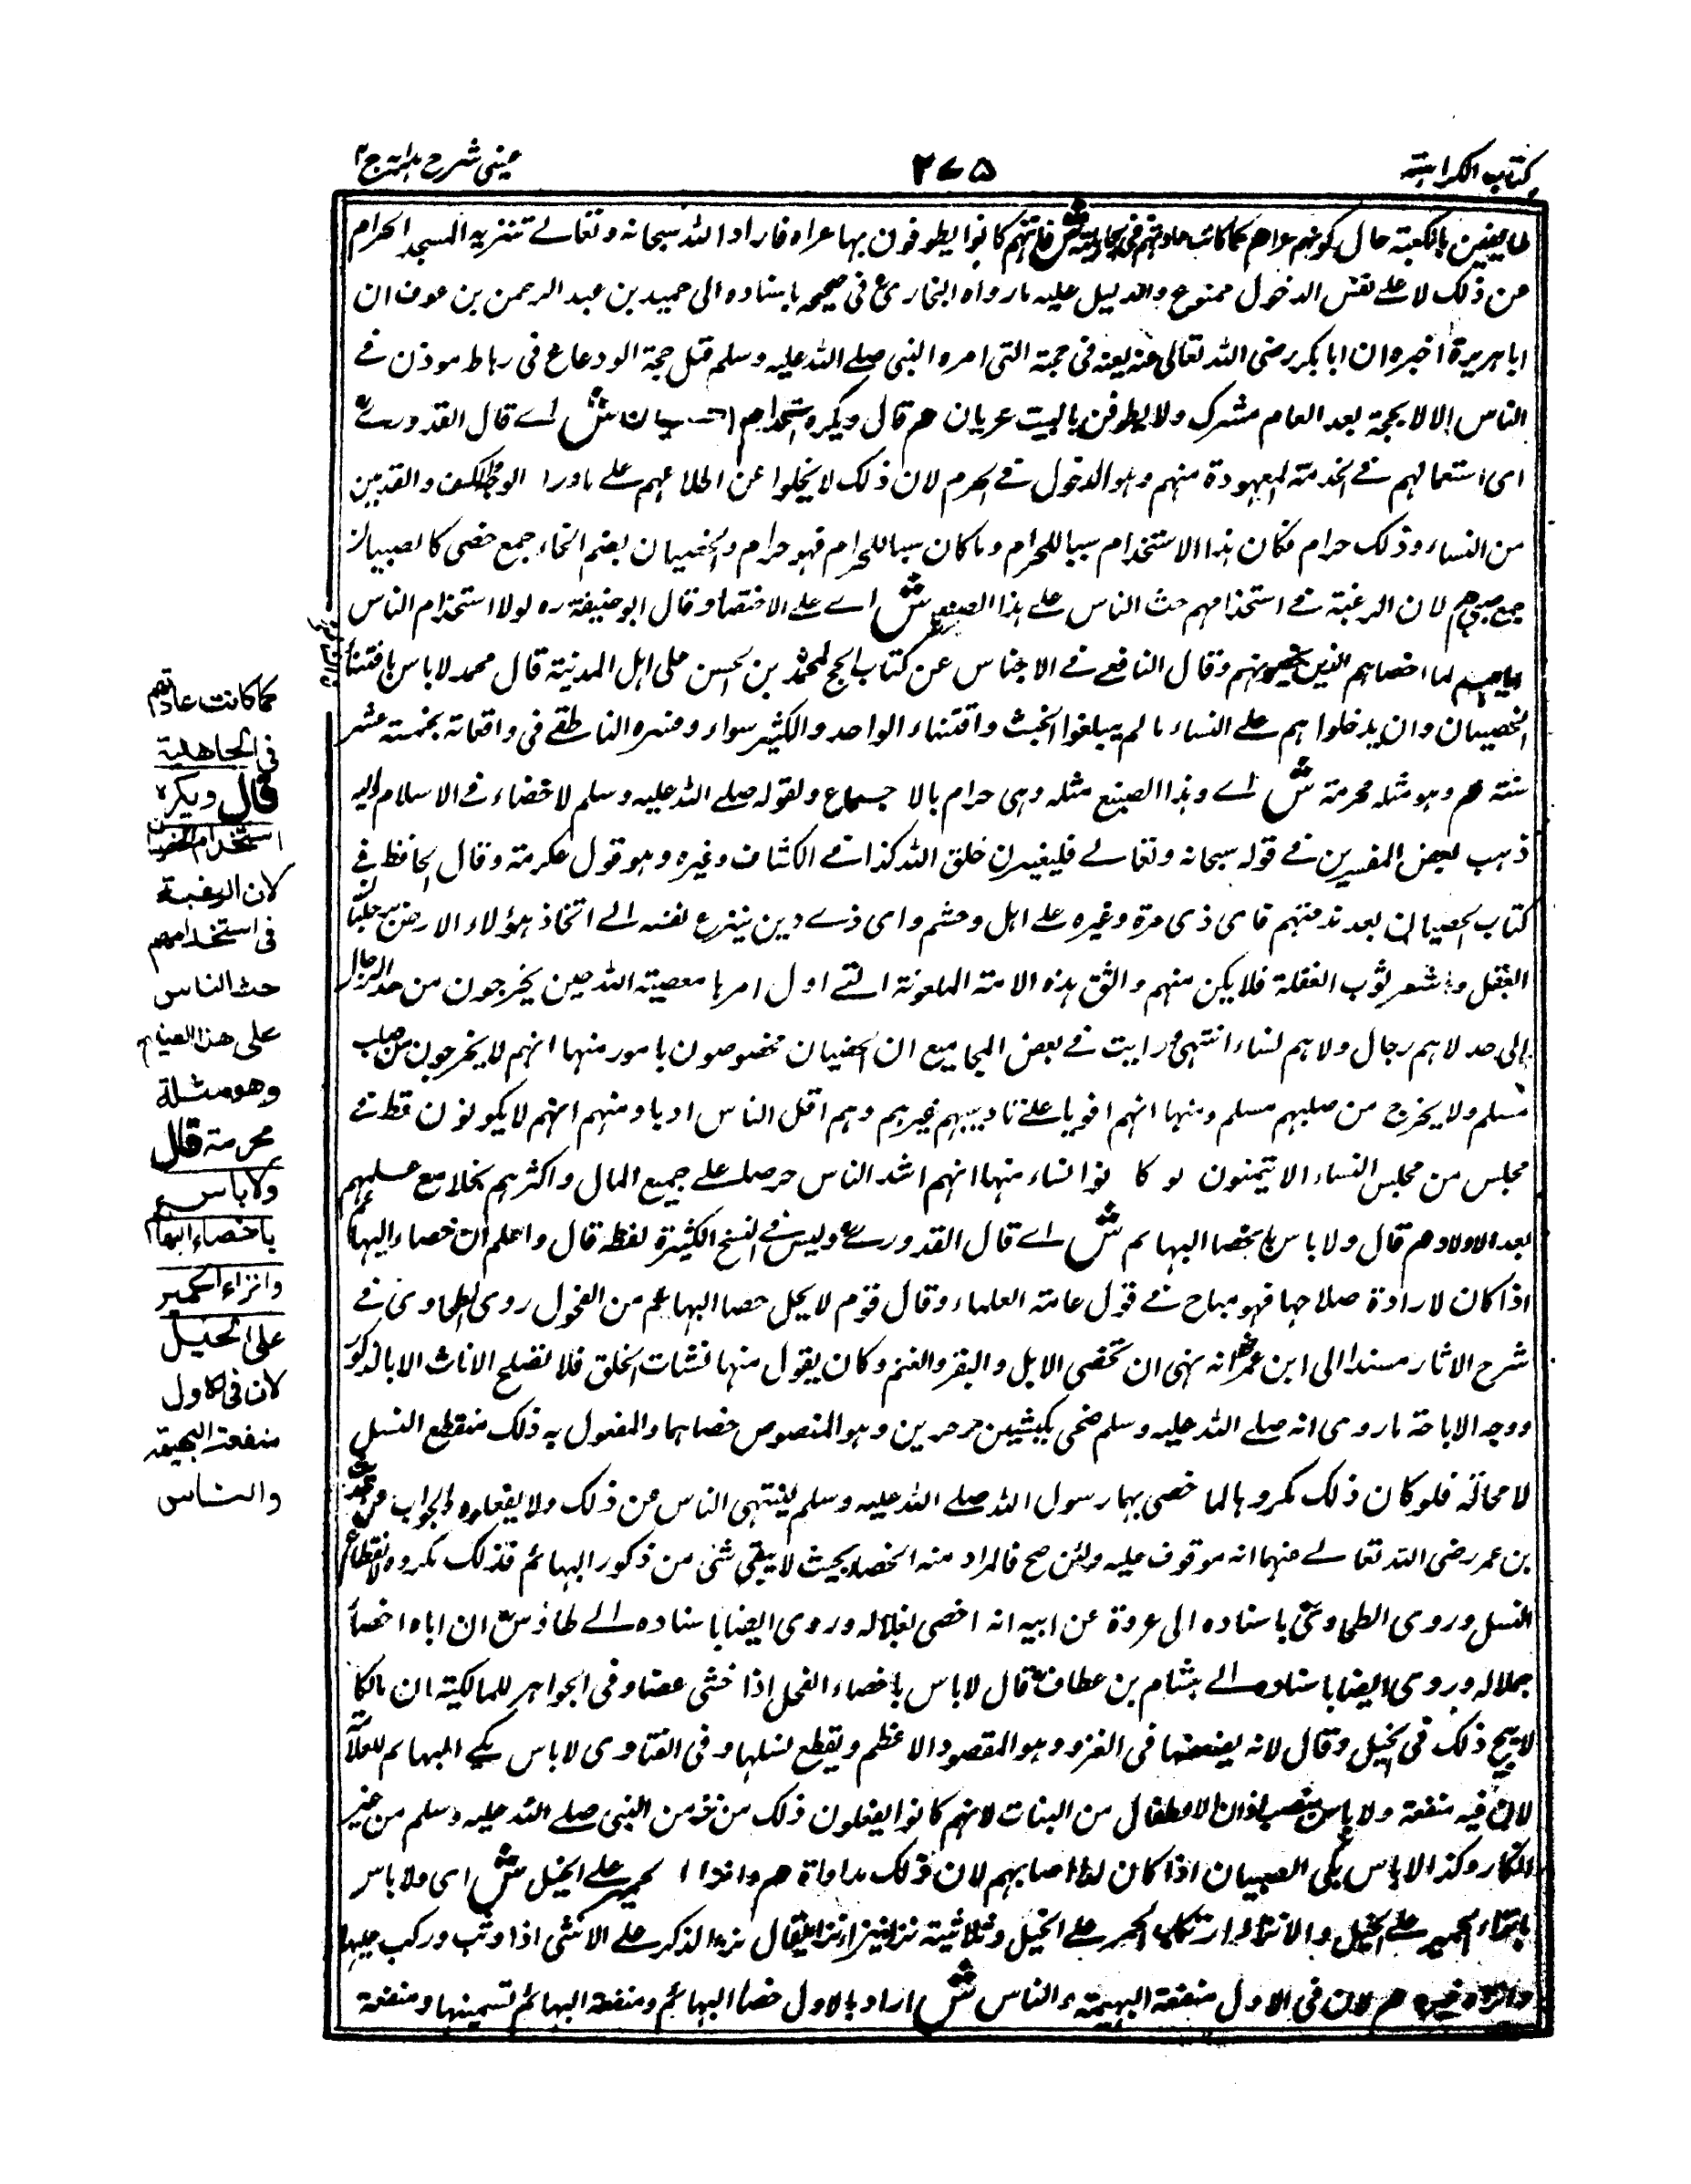 كتاب الكراهية
٢٧٥
عينى شرح هداية ج ٣
طايفين بالكعبة حال كونهم عراة هم كما كانت عادتهم فى الجاهلية ش فانهم كانوا يطوفون بها عراة فاراد الله سبحانه وتعالے تنزيه المسجد الحرام
عن ذلك لا علے نفس الدخول ممنوع والدليل عليه ما رواه البخارى فى صحيحه باسناده الى حميد بن عبد الرحمن بن عوف ان
ابا هريرة اخبره ان ابا بكر رضى الله تعالى عنه بعثه فى حجة التى امره النبى صلے الله عليه وسلم قبل حجة الوداع فى رهاط موذن فے
الناس الا لا يحجة بعد العام مشرك ولا يطوفن بالبيت عريان هم قال ويكره استخدام الخصيان ش اے قال القدورے
اى استعمالهم فے الخدمة المعهودة منهم وهو الدخول فے الحرم لان ذلك لا يخلوا عن اطلاعهم علے ما ورا الوجه والكف والقدمين
من النساء وذلك حرام فكان هذا الاستخدام سببا للحرام وما كان سببا للحرام فهو حرام والخصيان بضم الخاء جمع خصى كالصبيان
جمع صبى هم لان الرغبة فے استخدامهم حث الناس علے هذا الصنيع ش اے علے الاختصا وقال ابو حنيفة ره لولا استخدام الناس
اياهم لما اخصاهم الذين يخصونهم وقال النافعے فے الاجناس عن كتاب الحج لمحمد بن الحسن على اهل المدينة قال محمد لاباس باقتناء
الخصيان وان يدخلوا هم علے النساء ما لم يبلغوا الخبث واقتناء الواحد والكثير سواء وفسره الناطقے فى واقعاته بخمسة عشر
سنة هم وهو مثله محرمة ش اے وهذا الصنيع مثله وهى حرام بالاجماع ولقوله صلے الله عليه وسلم لا خصاء فے الاسلام واليه
ذهب بعض المفسرين فے قوله سبحانه وتعالے فليغيرن خلق الله كذا فے الكشاف وغيره وهو قول عكرمة وقال الحافظ فے
كتاب الخصيان بعد ندمتهم فاى ذى مرة وغيره علے اهل وحشم واى ذے دين ينزع نفسه الے اتخاذ هؤلاء الا رضى
الغفل واشعر ثوب الغفلة فلا يكن منهم واثق بهذه الامة الملعونة التے اول امرها معصية الله حين يخرجون من حد الرجال
إلى حد لا هم رجال ولا هم نساء انتهى ورايت فے بعض المجاميع ان الخصيان مخصوصون بامور منها انهم لا يخرجون من صلب
مسلم ولا يخرج من صلبهم مسلم ومنها انهم اقويا علے تاديبهم غيرهم وهم اقل الناس ادبا ومنهم انهم لا يكونون قط فے
مجلس من مجلس النساء الا يتمنون لو كا نوا نساء منها انهم اشد الناس حرصا علے جميع المال واكثرهم بخلا مع علمهم
بعد الاولاد هم قال ولاباس باخصا البهائم ش اے قال القدورے وليس فے النسخ الكثيرة لفظه قال واعلم ان خصاء البهائم
اذا كان لارادة صلاحها فهو مباح فے قول عامة العلماء وقال قوم لا يحل خصا البهائم من الفحول روى الطحاوى فے
شرح الاثار مسندا الى ابن عمر انه نهى ان تخصى الابل والبقر والغنم وكان يقول منها نشات الخلق فلا تصلح الاناث الا بالذكور
ووجه الاباحة ما روى انه صلے الله عليه وسلم ضحى بكبشين موجوءين وهو المنصوص خصاهما والمفعول به ذلك منقطع النسل
لا محالة فلو كان ذلك مكروها لما ضحى بهما رسول الله صلے الله عليه وسلم لينتهى الناس عن ذلك ولا يفعلوه والجواب عن حديث
بن عمر رضى الله تعالے عنهما انه موقوف عليه ولئن صح فالمراد منه الخصاء بحيث لا يبقى شئ من ذكور البهائم فذلك مكروه لانقطاع
النسل وروى الطحاوى باسناده الى عروة عن ابيه انه اخصى بغلا له وروى ايضا باسناده الے طاؤس ان اباه اخصا
جملا له وروى ايضا باسناده الے هشام بن عطاف قال لاباس باخصاء الفحل اذا خشى عضاه وفى الجواهر للمالكية ان مالكا
لا يبيح ذلك فى الخيل وقال لانه يضعفها فى الغزو وهو المقصود الاعظم ويقطع نسلها وفى الفتاوى لاباس بكے البهائم للعلامة
لان فيه منفعة ولاباس بثقب اذان الاطفال من البنات لانهم كانوا يفعلون ذلك من زمن النبى صلے الله عليه وسلم من غير
انكار وكذا لاباس بكى الصبيان اذا كان لدا اصابهم لان ذلك مداواة هم وانزا الحمير علے الخيل ش اى ولا باس
بانزاء الحمير علے الخيل والانزاء ارتكاب الحمر علے الخيل وثلاثيته نزا ينزا نزا يقال نزا الذكر علے الانثى اذا وثب وركب عليها
وانزاه غيره هم لان فى الاول منفعة البهيمة والناس ش اراد بالاول خصا البهائم ومنفعة البهائم تسمينها ومنفعة
كما كانت عادتهم
فى الجاهلية
قال ويكره
استخدام الخصيان
لان الرغبة
فى استخدامهم
حث الناس
على هذا الصنيع
وهو مثلة
محرمة قال
ولاباس
باخصاء البهائم
وانزاء الحمير
على الخيل
لان فى الاول
منفعة البهيمة
والناس